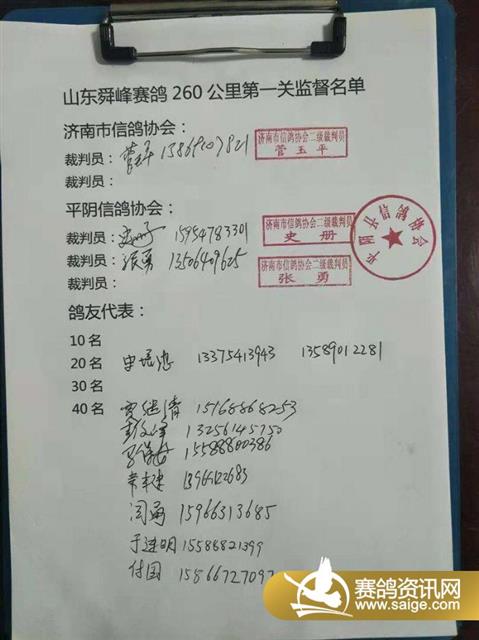 山东舜峰赛鸽260公里第一关监督名单
济南市信鸽协会：
裁判员： 济南市信鸽协会二级裁判员
管玉平
裁判员：
平阴信鸽协会： 平阴县信鸽协会
裁判员：史册 15954783301 济南市信鸽协会二级裁判员
史册
裁判员：张勇 13506409625 济南市信鸽协会二级裁判员
张勇
鸽友代表：
10名
20名 13375413943 13589012281
30名
40名 贾继清 15168868253
13256145750
15588800386
闫勇 15966313685
于进明 15588821399
付国 15866727097
赛鸽资讯网
www.saige.com